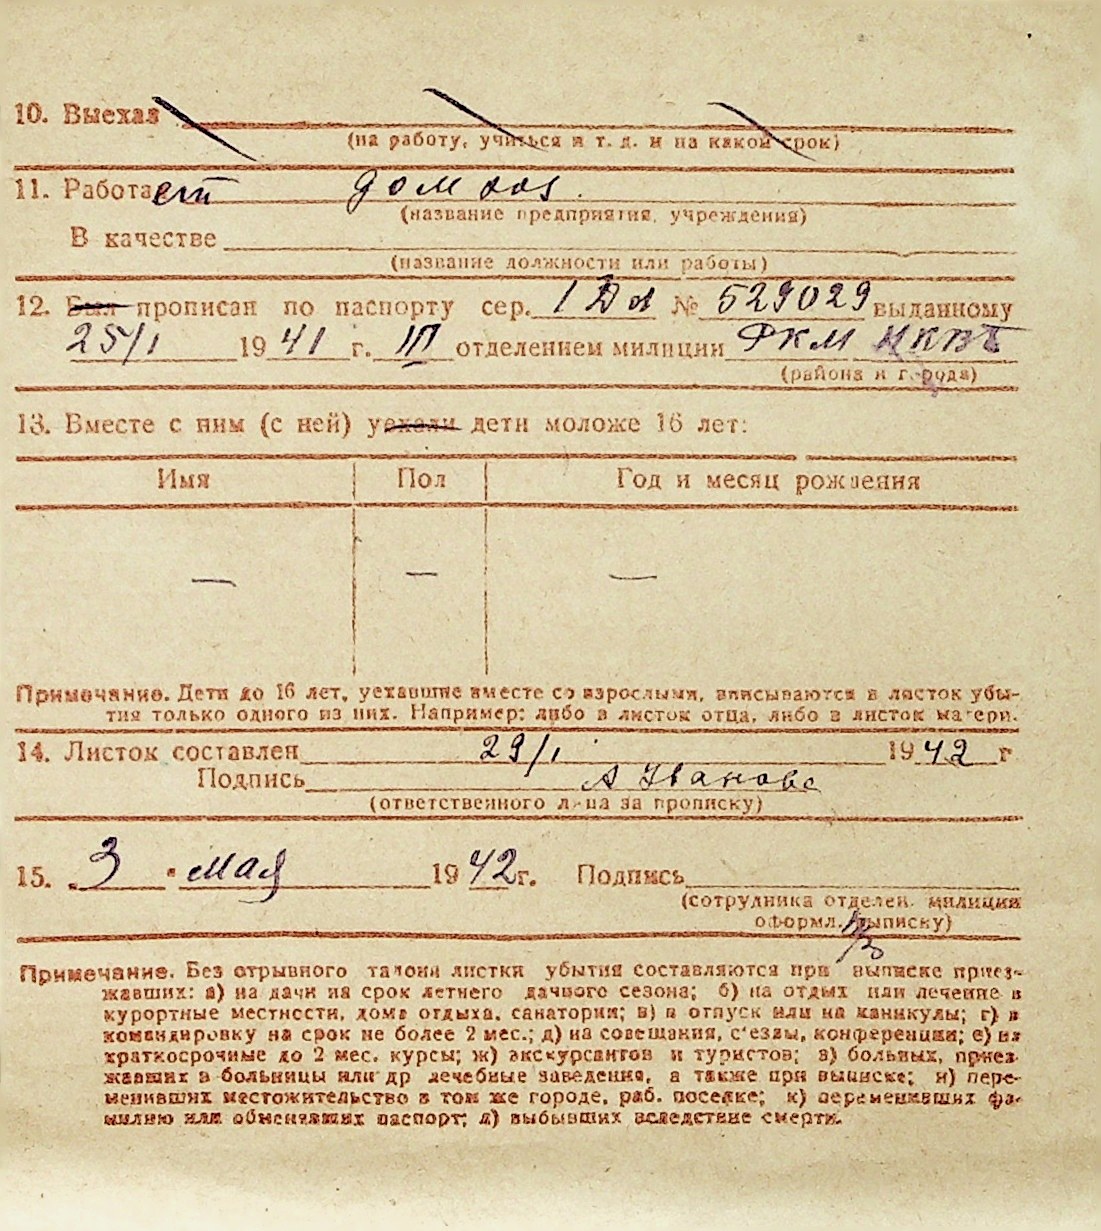 10. Выехал
(на работу, учиться и т. д. и на какой срок)
11. Работает дом хоз.
(название предприятия, учреждения)
В качестве
(название должности или работы)
12. Был прописан по паспорту сер. 1 № 529029 выданному
25/I 1941 г. III отделением милиции РКМ
(района и города)
13. Вместе с ним (с ней) уехали дети моложе 16 лет:
Имя Пол Год и месяц рождения
— — —
Примечание. Дети до 16 лет, уехавшие вместе со взрослыми, вписываются в листок убы-
тия только одного из них. Например: либо в листок отца, либо в листок матери.
14. Листок составлен 29/I 1942 г
Подпись А Иванова
(ответственного лица за прописку)
15. "3" мая 1942 г. Подпись
(сотрудника отделен. милиции
оформл. выписку)
Примечание. Без отрывного талона листки убытия составляются при выписке приез-
жавших: а) на дачи на срок летнего дачного сезона; б) на отдых или лечение в
курортные местности, дома отдыха, санатории; в) в отпуск или на каникулы; г) в
командировку на срок не более 2 мес.; д) на совещания, с'езды, конференции; е) на
краткосрочные до 2 мес. курсы; ж) экскурсантов и туристов; з) больных, приез-
жавших в больницы или др лечебные заведения, а также при выписке; и) пере-
менивших местожительство в том же городе, раб. поселке; к) переменивших фа-
милию или обменявших паспорт; л) выбывших вследствие смерти.